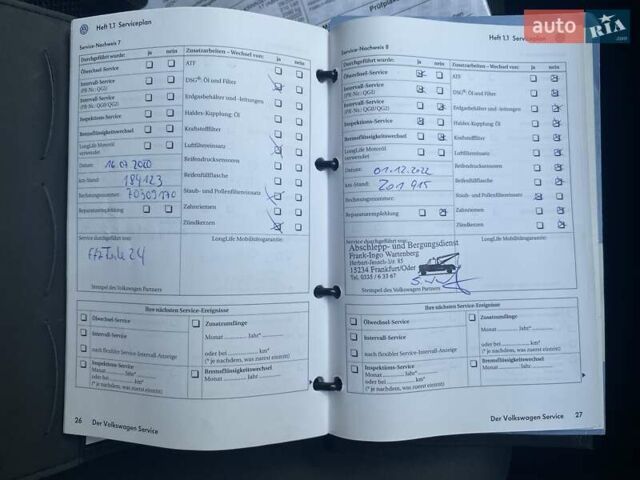 Heft 1.1 Serviceplan
Service-Nachweis 7
Durchgeführt wurde: ja nein
Zusatzarbeiten – Wechsel von: ja nein
Ölwechsel-Service
ATF
Intervall-Service
(PR-Nr.: QG1)
DSG®: Öl und Filter
Intervall-Service
(PR-Nr.: QG0/QG2)
Erdgasbehälter und -leitungen
Inspektions-Service
Haldex-Kupplung: Öl
Bremsflüssigkeitswechsel
Kraftstofffilter
LongLife Motoröl
verwendet
Luftfiltereinsatz
Datum: 16.07.2020
Reifendrucksensoren
km-Stand: 184123
Reifenfüllflasche
Rechnungsnummer: 70309170
Staub- und Pollenfiltereinsatz
Reparaturempfehlung
Zahnriemen
Zündkerzen
Service durchgeführt von:
LongLife Mobilitätsgarantie:
Stempel des Volkswagen Partners
Ihre nächsten Service-Ereignisse
Ölwechsel-Service
Zusatzumfänge
Intervall-Service
Monat Jahr*
nach flexibler Service-Intervall-Anzeige
oder bei km*
(* je nachdem, was zuerst eintritt)
Inspektions-Service
Monat Jahr*
oder bei km*
(* je nachdem, was zuerst eintritt)
Bremsflüssigkeitswechsel
Monat Jahr
26 Der Volkswagen Service
Heft 1.1 Serviceplan
Service-Nachweis 8
Durchgeführt wurde: ja nein
Zusatzarbeiten – Wechsel von: ja nein
Ölwechsel-Service
ATF
Intervall-Service
(PR-Nr.: QG1)
DSG®: Öl und Filter
Intervall-Service
(PR-Nr.: QG0/QG2)
Erdgasbehälter und -leitungen
Inspektions-Service
Haldex-Kupplung: Öl
Bremsflüssigkeitswechsel
Kraftstofffilter
LongLife Motoröl
verwendet
Luftfiltereinsatz
Datum: 01.12.2022
Reifendrucksensoren
km-Stand: 201915
Reifenfüllflasche
Rechnungsnummer:
Staub- und Pollenfiltereinsatz
Reparaturempfehlung
Zahnriemen
Zündkerzen
Service durchgeführt von:
LongLife Mobilitätsgarantie:
Abschlepp- und Bergungsdienst
Frank-Ingo Wartenberg
15234 Frankfurt/Oder
Tel. 0335 / 6 33 67
Stempel des Volkswagen Partners
Ihre nächsten Service-Ereignisse
Ölwechsel-Service
Zusatzumfänge
Intervall-Service
Monat Jahr*
nach flexibler Service-Intervall-Anzeige
oder bei km*
(* je nachdem, was zuerst eintritt)
Inspektions-Service
Monat Jahr*
oder bei km*
(* je nachdem, was zuerst eintritt)
Bremsflüssigkeitswechsel
Monat Jahr
Der Volkswagen Service 27
auto RIA
.com